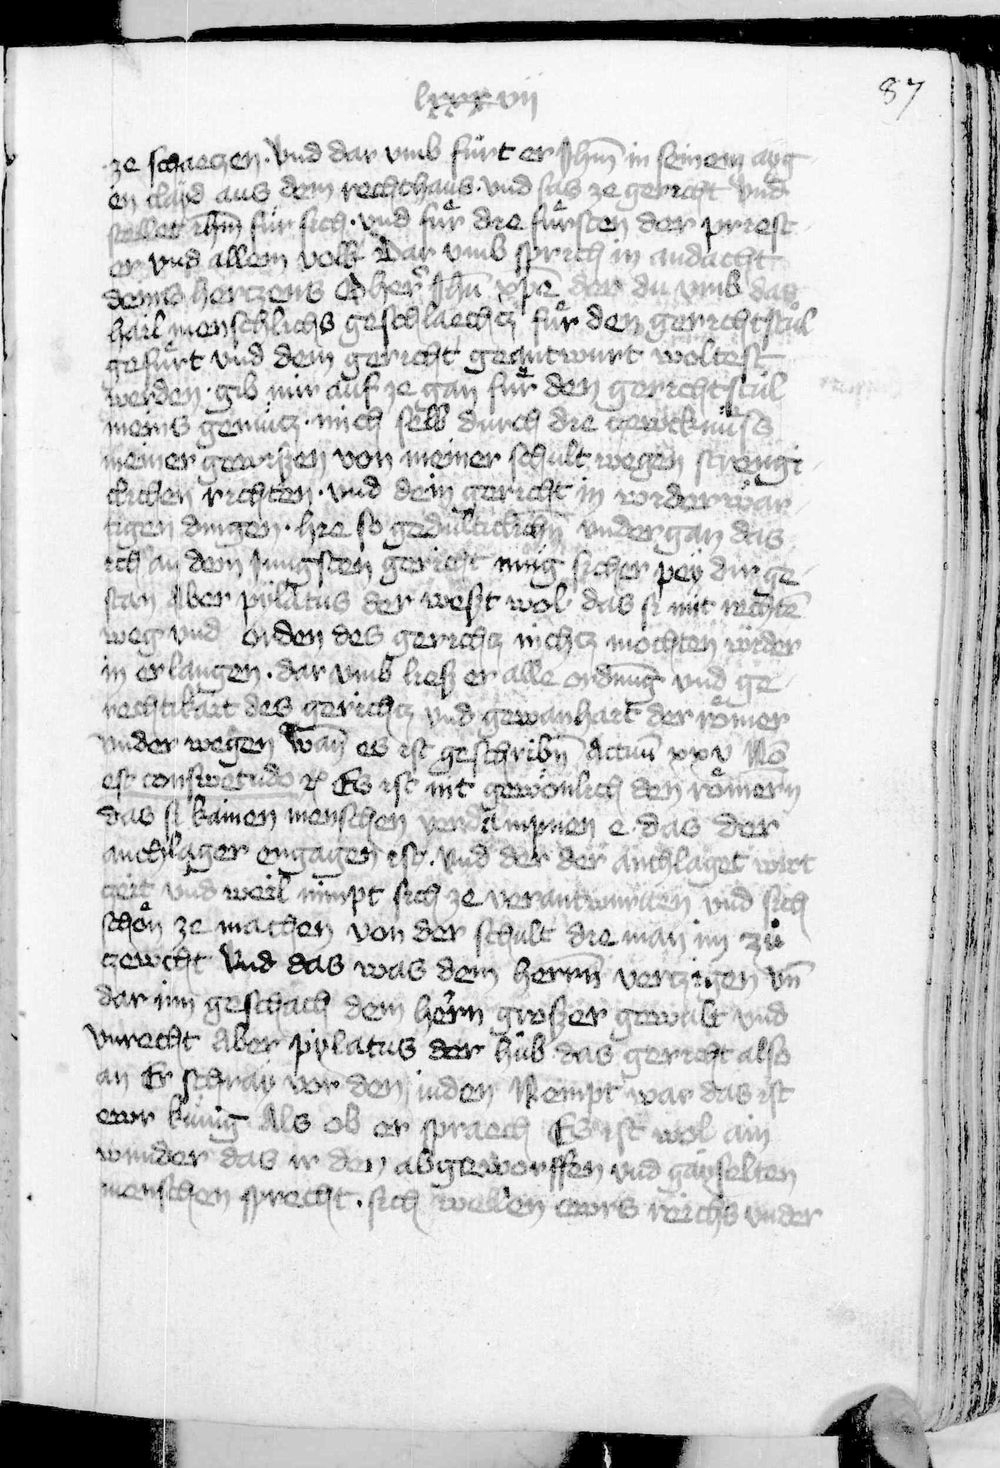 lxxxvii
87
ze schaetzen · Vnd dar vmb fuͤrt er Jhm̄ in seinem aÿg
en claÿd aus dem rechthaus · vnd sas ze gericht vnd
stellet ihm̄ fuͤr sich · vnd fuͤr die fuͤrsten der priest
er vnd allem volk Dar vmb sprich in andacht
deins hertzens O her̄ Jhū xp̄e der du vmb das
hail menschlichs geschlaechtz fuͤr den gerichtstuͤl
gefuͤrt vnd dem gericht geantwurt woltest
werden · gib mir auf ze gan fuͤr den gerichtstuͤl
meins gemuͤtz · mich selb durch die zewcknüss
meiner gewiszen von meiner schult wegen strengi
clichen richten · vnd dein gericht in widerwaͤr
tigen dingen · hie so gedultiklichn̄ vndergan das
ich an dem Jungsten gericht mug sicher peÿ dir ge
stan Aber pÿlatus der weszt wol das si mit rechtē
weg vnd orden des gerichtz nichtz mochten wider
in erlangen · dar vmb liesz er alle ordnūg vnd ge
rechtikait des gerichtz vnd gewanhait der roͤmer
vnder wegen Wan̄ es ist geschribn̄ Actuū xxv Nō
est conswetudo ꝛc Es ist nit gewonlich den roͤmern
das si kainen menschen verdampnen e · das der
anchlager engagen ist · Vnd der der anchlaget wirt
zeit vnd weil nimpt sich ze verantwurten vnd sich
schoͤn ze machen von der schult die man im zuͤ
zewcht Vnd das was dem herrn̄ verzigen vn̄
dar inn geschach dem her̄n groszer gewalt vnd
vnrecht Aber pÿlatus der huͤb das gericht also
an Er schray vor den juden Nempt war das ist
ewr kunig Als ob er spraech Es ist wol ain
wunder das ir den abgeworffen vnd gayselten
menschen sprecht · sich wellen ewrs reichs vnder